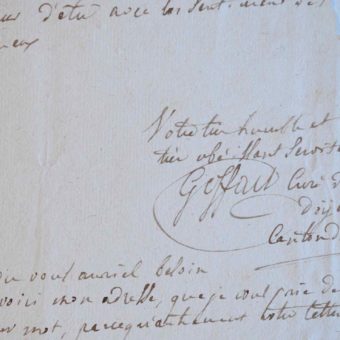 d'etre avec les sentimens
Votre tres humble et
tres obéissant Servit
Geffard Curé
Canton d
vous auriel besoin
voici mon adresse, que je vous prie de
mot, parcequ'autrement votre lettre